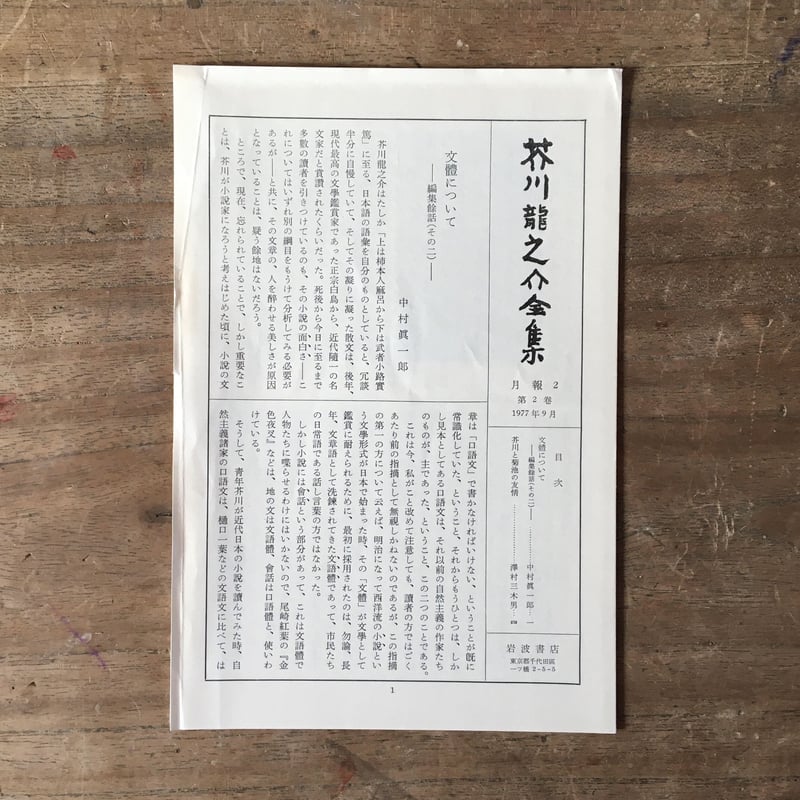 芥川龍之介全集
月報2
第2巻
1977年9月
目次
文體について
——編集餘話(その二)——…………中村眞一郎…一
芥川と菊池の友情…………澤村三木男…四
岩波書店
東京都千代田區
一ツ橋2-5-5
文體について
——編集餘話(その二)——
中村眞一郎
芥川龍之介はたしか「上は柿本人麻呂から下は武者小路實
篤」に至る、日本語の語彙を自分のものとしていると、冗談
半分に自慢していて、そしてその凝りに凝った散文は、後年、
現代最高の文學鑑賞家であった正宗白鳥から、近代隨一の名
文家だと賞讃されたくらいだった。死後から今日に至るまで
多數の讀者を引きつけているのも、その小說の面白さ——こ
れについてはいずれ別の綱目をもうけて分析してみる必要が
あるが——と共に、その文章の、人を醉わせる美しさが原因
となっていることは、疑う餘地はないだろう。
ところで、現在、忘れられていることで、しかし重要なこ
とは、芥川が小說家になろうと考えはじめた頃に、小說の文
章は「口語文」で書かなければいけない、ということが旣に
常識化していた、ということ、それからもうひとつは、しか
し見本としてある口語文は、それ以前の自然主義の作家たち
のものが、主であった、ということ、この二つのことである。
これは今、私がこと改めて注意しても、讀者の方ではごく
あたり前の指摘として無視しかねないのであるが、この指摘
の第一の方について云えば、明治になって西洋流の小說とい
う文學形式が日本で始まった時、その「文體」が文學として
鑑賞に耐えられるために、最初に採用されたのは、勿論、長
年、文章語として洗鍊されてきた文語體であって、市民たち
の日常語である話し言葉の方ではなかった。
しかし小說には會話という部分があって、これは文語體で
人物たちに喋らせるわけにはいかないので、尾崎紅葉の『金
色夜叉』などは、地の文は文語體、會話は口語體と、使いわ
けている。
そうして、靑年芥川が近代日本の小說を讀んでみた時、自
然主義諸家の口語文は、樋口一葉などの文語文に比べて、は
1